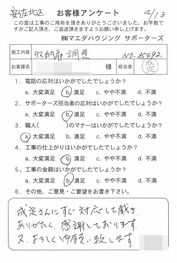 安佐北区
お客様アンケート
4/13
この度は工事のご用命を頂きありがとうございました。お手数で
すがご記入頂き、ご返送頂きますようお願い申し上げます。
㈱マエダハウジング サポーターズ
施工内容
調整
お客様名
様
担当者
1．電話の応対はいかがでしたでしょうか？
a．大変満足 b．満足 c．やや不満 d．不満
2．サポーターズ担当者の応対はいかがでしたでしょうか？
a．大変満足 b．満足 c．やや不満 d．不満
3．職人（ ）のマナーはいかがでしたでしょうか？
a．大変満足 b．満足 c．やや不満 d．不満
4．工事の仕上がりはいかがでしたでしょうか？
a．大変満足 b．満足 c．やや不満 d．不満
5．工事の金額はいかがでしたでしょうか？
a．大変満足 b．満足 c．やや不満 d．不満
6．その他、ご意見・ご要望をお書き下さい。
さんにすぐ対応して戴き
ありがたく、感謝しております
又、よろしくお願い致します